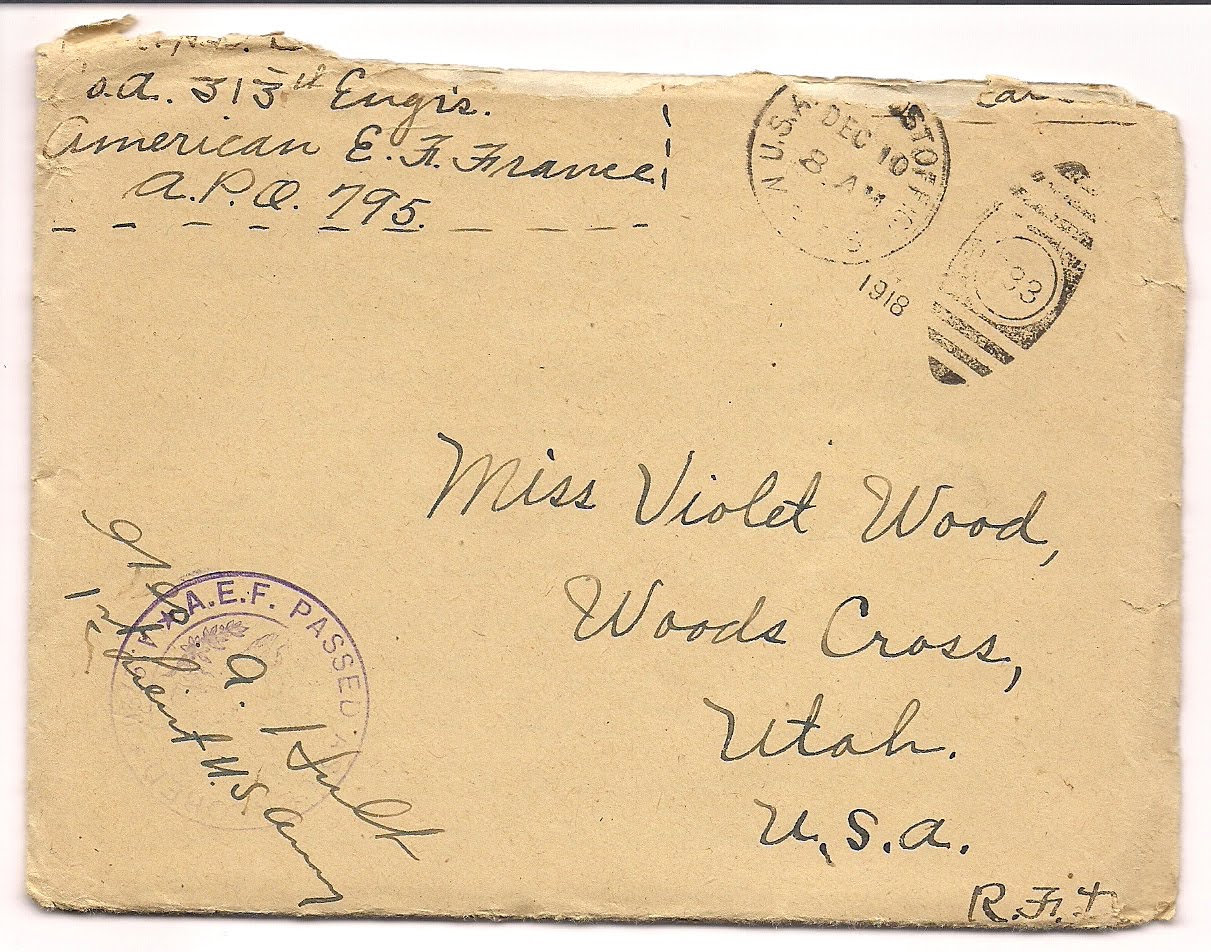 313th Eng'rs.
American E. F. France
A.P.O. 795.
U.S.
DEC 10
8 AM
1918
Miss Violet Wood,
Woods Cross,
Utah.
U.S.A.
A.E.F. PASSED
A. Hult
1st Lieut U.S. Army